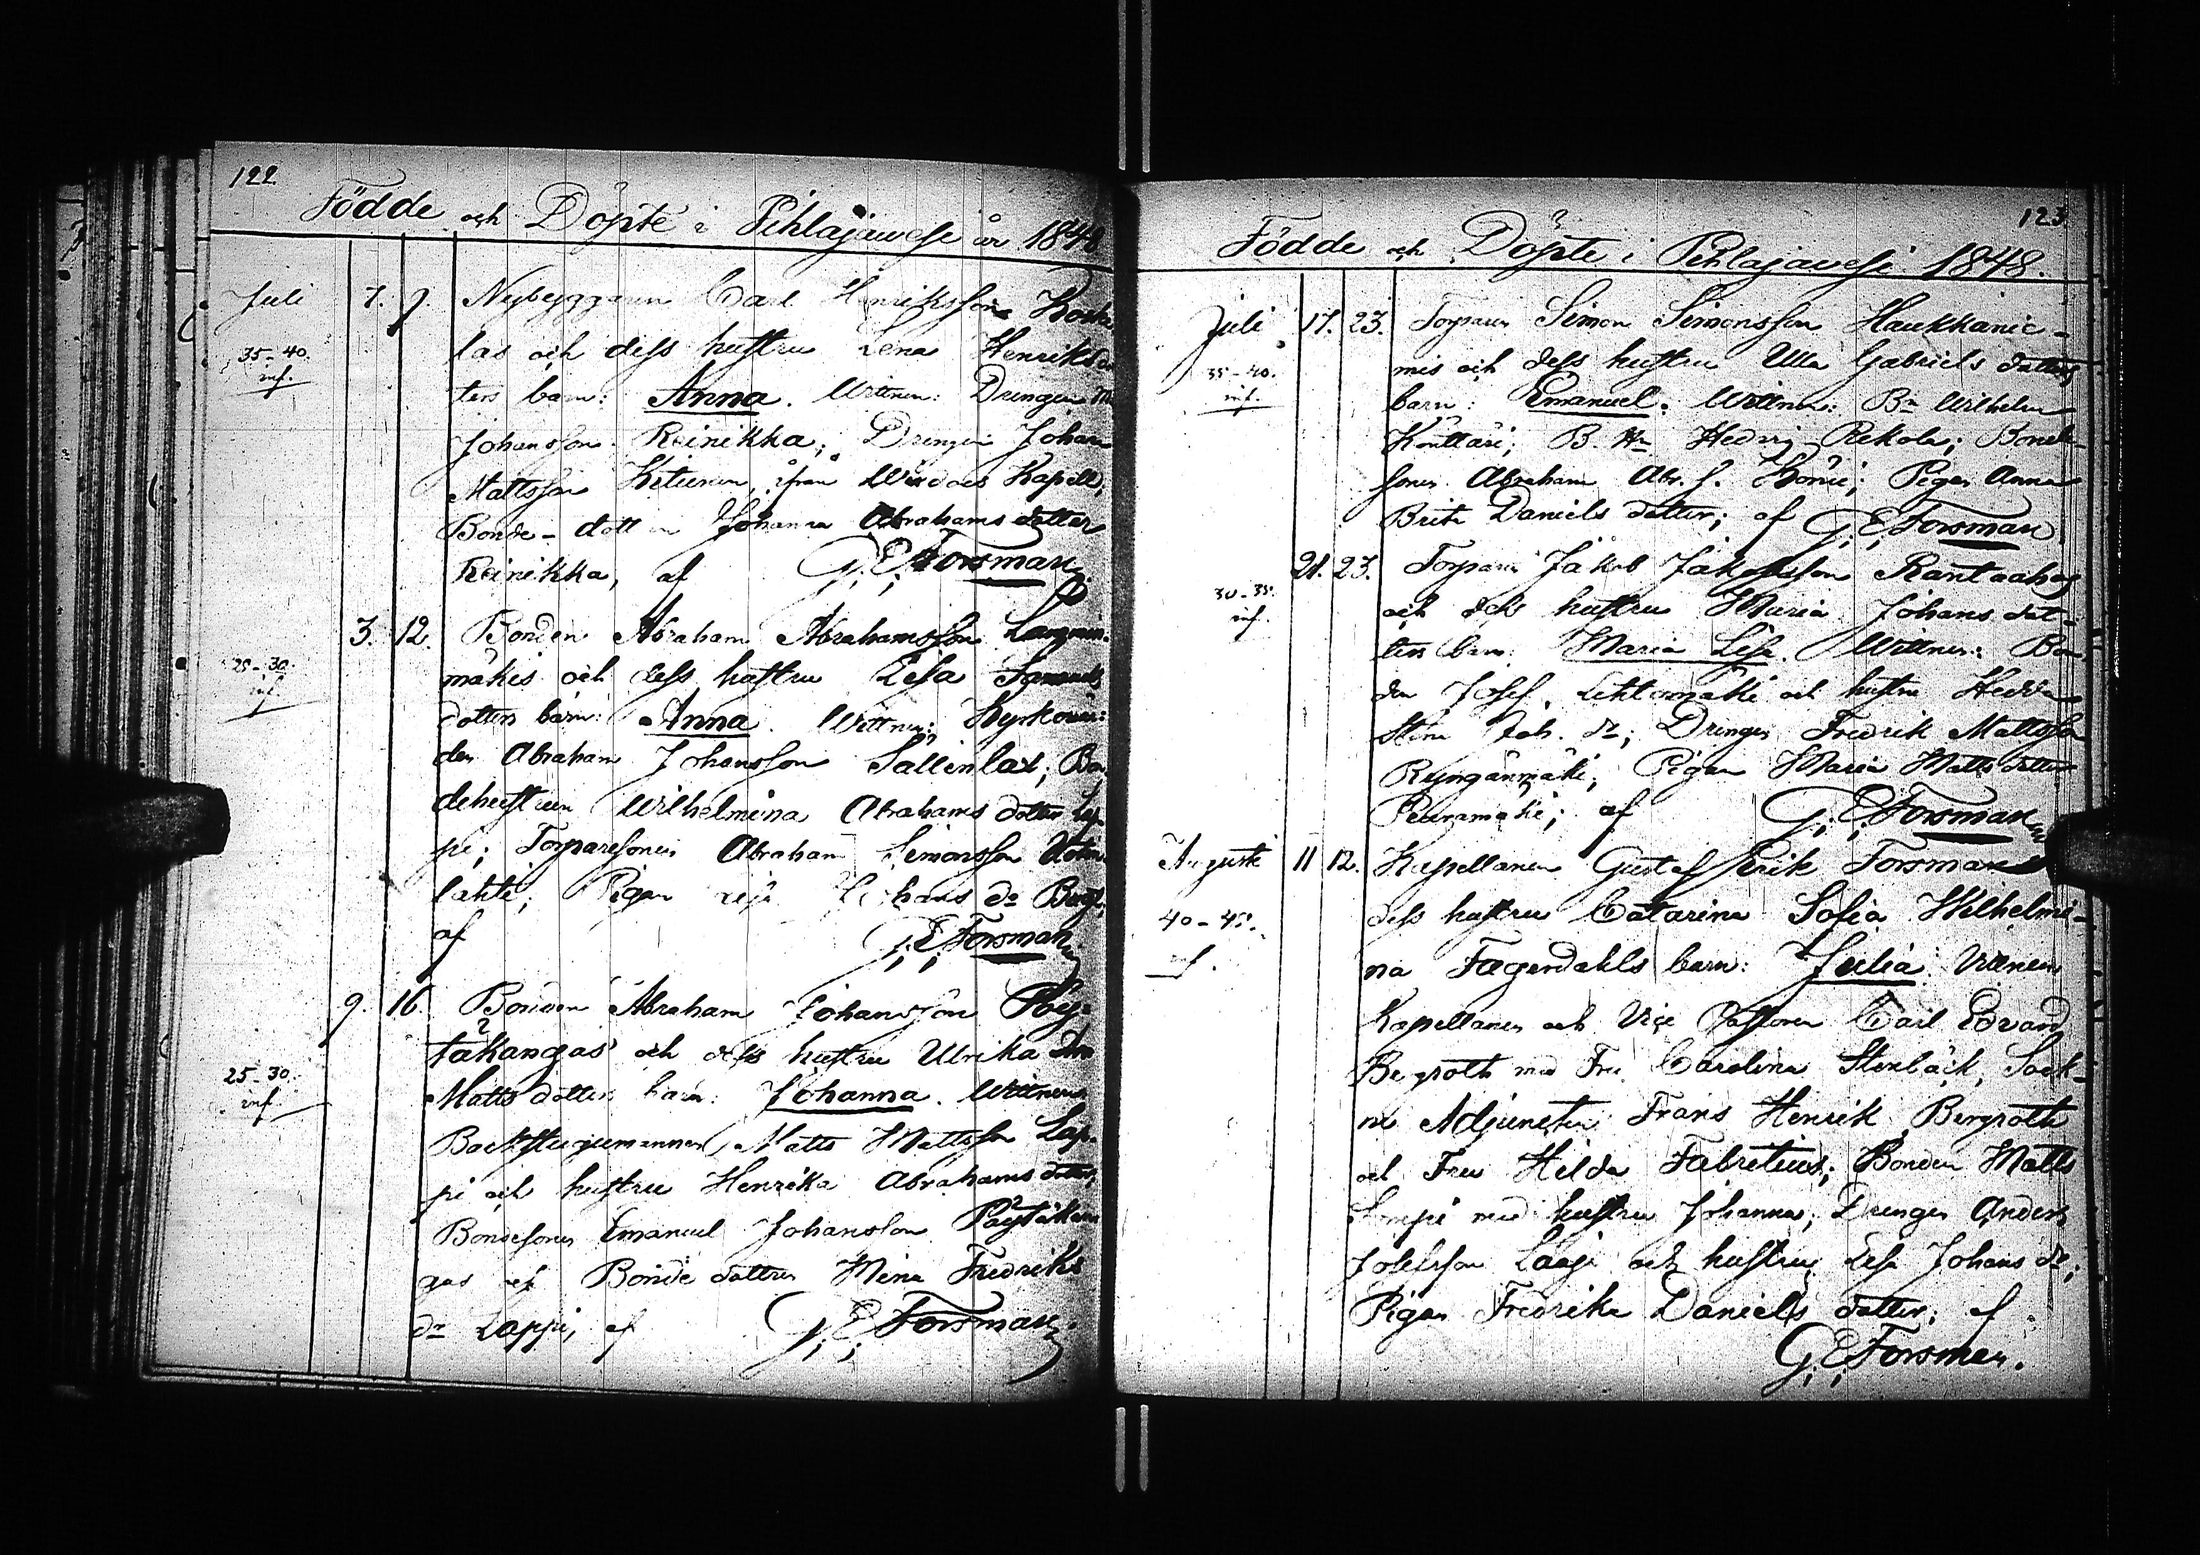 122
Födde och Döpte i Pihlajawesi år 1848
Juli 7. 9. Nybyggaren Carl Henriksson Koske
35-40. inf.
las och dess hustru Lena Henriksdot
ters barn: Anna. Wittnen: Drengen
Johansson Reinikka; Drengen Johan
Mattsson Kituren, ifrån Wirdois Kapell;
Bonde-dottren Johanna Abrahams dotter
Reinikka, af G. E. Forsman
3. 12. Bonden Abraham Abrahamsson Lamminmäkis
25-30. inf.
och dess hustru Lisa Samuels
dotters barn: Anna. Wittnen: Kyrkowär-
den Abraham Johansson Sällinlax; Bon
dehustrun Wilhelmina Abrahams dotter Lap
pi; Torparesonen Abraham Simonsson
lahti; Pigan Johans dr
af G. E. Forsman
9. 16. Bonden Abraham Johansson Pöy-
täkangas och dess hustru Ulrika
25-30. inf.
Matts dotters barn: Johanna. Wittnen
Backstugumannen Matts Mattsson Lap-
pi och hustru Henrika Abrahams dotter;
Bondesonen Emanuel Johansson Pöytäkan
gas och Bonde dottren Mina Fredriks
dr Lappi, af G. E. Forsman.
123.
Födde och Döpte i Pihlajawesi 1848.
Juli 17. 23. Torparen Simon Simonsson Haukkanie-
35-40. inf.
mis och dess hustru Ulla Gabriels dotters
barn: Emanuel. Wittnen: Bn Wilhelm
Könttäri; B. Hn Hedvig Rekola; Bonde-
sonen Abraham Abr. s. Köniö; Pigan Anna
Brita Daniels dotter; af G. E. Forsman
21. 23. Torparen Jakob Jakobsson Rantaahos
30-35. inf.
och dess hustru Maria Johans dot-
ters barn: Maria Lisa. Wittnen: Bon
den Josef Lehtomäki och hustru Hedda
Stina Joh. dr; Drengen Fredrik Mattsson
Ryingänmäki; Pigan Maria Matts dotter
Peuramäki; af G. E. Forsman
Augusti 11 12. Kapellanen Gustaf Erik Forsmans
40-45. inf.
dess hustru Catarina Sofia Wilhelmi-
na Fagerdahls barn: Julia. Wittnen
Kapellanen och Vice Pastoren Carl Edvard
Bergroth med Fru Carolina Stenbäck, Sock-
ne Adjuncten Frans Henrik Bergroth
och Fru Hilda Fabritius; Bonden Matts
Lampi med hustru Johanna; Drengen Anders
Josefsson Laaja och hustru Lisa Johans dr;
Pigan Fredrika Daniels dotter; af
G. E. Forsman.